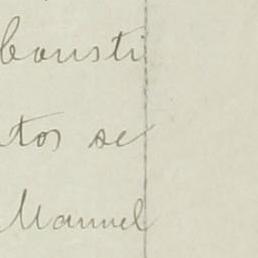 Consti
tos se
Manuel